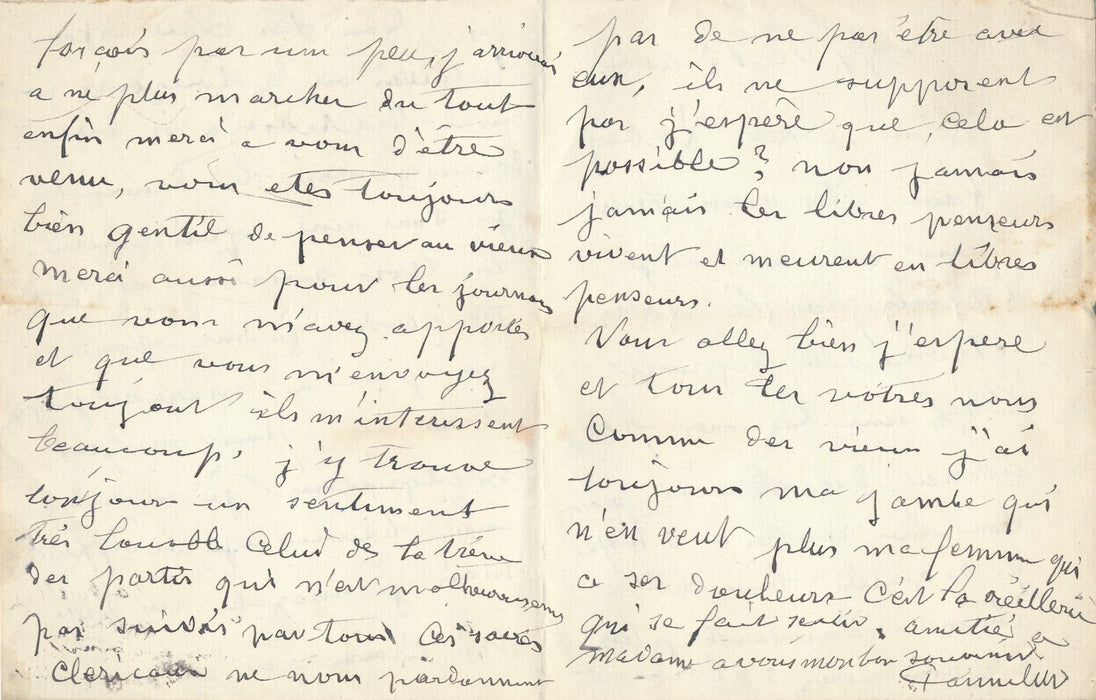 forçais par un peu, j'arrivais
a ne plus marcher du tout
enfin merci a vous d'être
venu, vous etes toujours
bien gentil de penser au vieux
merci aussi pour les journaux
que vous m'avez apportés
et que vous m'envoyez
toujours ils m'interessent
beaucoup, j'y trouve
toujours un sentiment
très louable celui de la trève
des partis qui n'est malheureusement
pas suivis par tous ces sacrés
clericaux ne nous pardonnent
pas de ne pas être avec
eux, ils ne supposent
pas j'espère que cela est
possible? non jamais
jamais les libres penseurs
vivent et meurent en libres
penseurs.
Vous allez bien j'espere
et tous les votres nous
comme des vieux j'ai
toujours ma jambe qui
n'en veut plus ma femme qui
a ses douleurs c'est la vieillerie
qui se fait sentir, amitié a
madame a vous mon bon souvenir